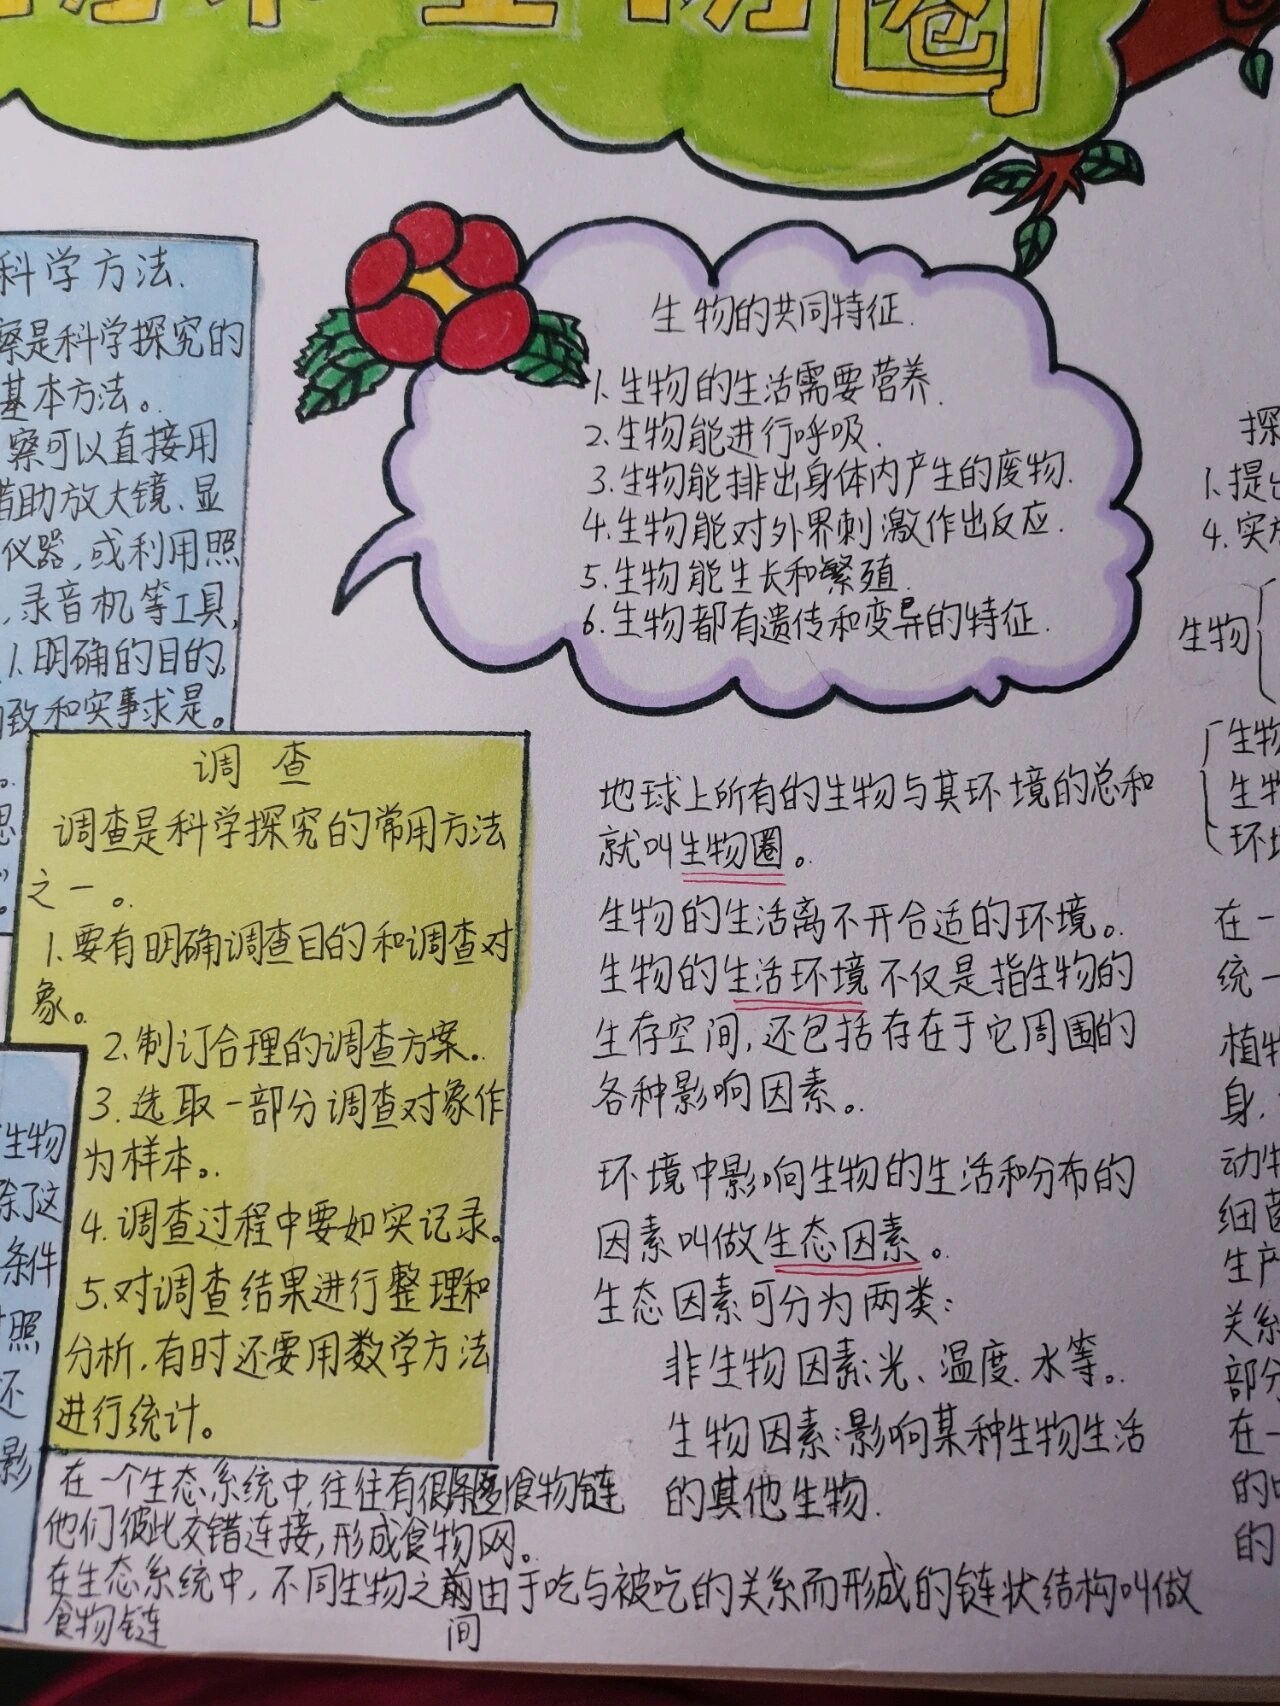 圈
科学方法.
察是科学探究的
基本方法。
察可以直接用
借助放大镜、显
仪器,或利用照
,录音机等工具,
1.明确的目的,
致和实事求是。
调查
调查是科学探究的常用方法
之一。
1.要有明确调查目的和调查对
象。
2.制订合理的调查方案.
3.选取一部分调查对象作
为样本。
4.调查过程中要如实记录。
5.对调查结果进行整理和
分析.有时还要用数学方法
进行统计。
生物
除了这
条件
照
还
影
在一个生态系统中,往往有很多食物链
他们彼此交错连接,形成食物网。
在生态系统中,不同生物之间由于吃与被吃的关系而形成的链状结构叫做
食物链
生物的共同特征.
1.生物的生活需要营养.
2.生物能进行呼吸.
3.生物能排出身体内产生的废物.
4.生物能对外界刺激作出反应.
5.生物能生长和繁殖.
6.生物都有遗传和变异的特征.
地球上所有的生物与其环境的总和
就叫生物圈。
生物的生活离不开合适的环境。
生物的生活环境不仅是指生物的
生存空间,还包括存在于它周围的
各种影响因素。
环境中影响生物的生活和分布的
因素叫做生态因素。
生态因素可分为两类:
非生物因素:光、温度.水等。
生物因素:影响某种生物生活
的其他生物.
探
1.提出
4.实
生物
生物
生物
环境
在一
统一
植物
身.
动物
细菌
生产
关系
部分
在一
的
的